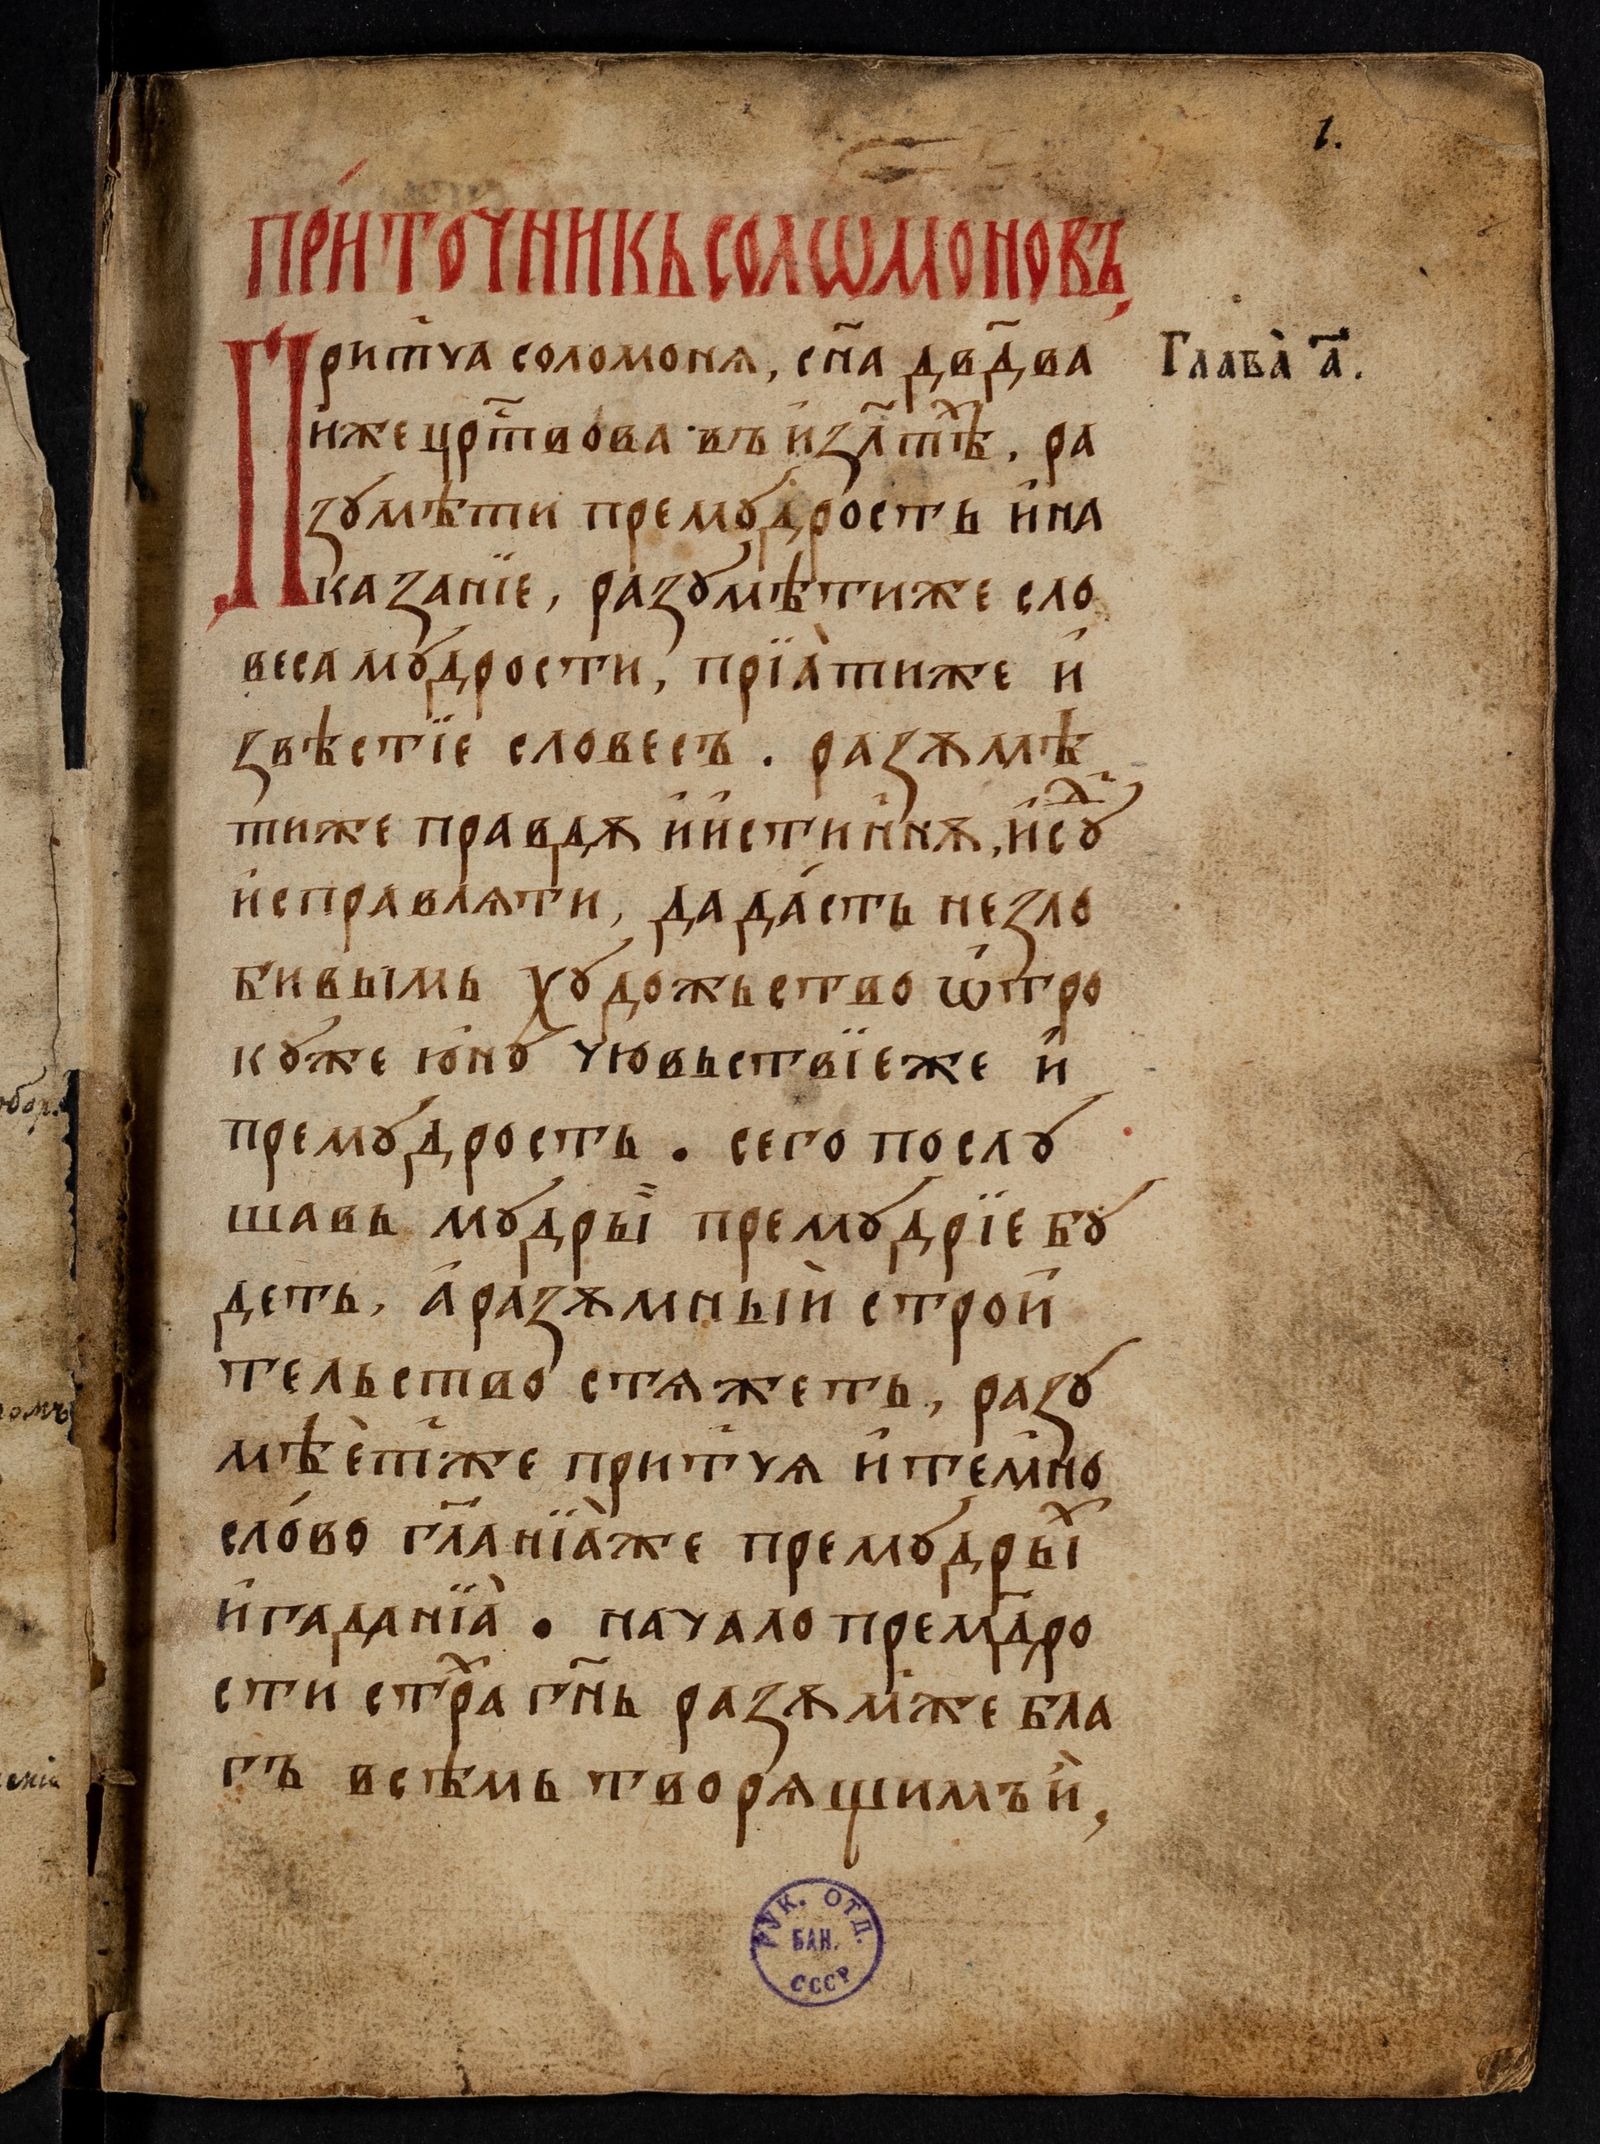 1.
ПРИ́ТОЧНИКЬ СОЛѠМОНОВЪ
Прит҇ча соломонѧ, сн҃а двд҃ва
Глава̀ а҃.
иже црт҇вова въ и҆зл҃тѣ. ра
зꙋмѣти премꙋдрость и҆ на
казанїе, разꙋмѣтиже сло
веса мꙋдрости, прїа̀тиже и҆
звѣстїе словесъ. разѫмѣ
тиже правдѫ и҆ и҆стиннѫ, и҆ сꙋⷣ
и҆справлѧти, да да́сть незло
бивымь хꙋдожьство ѡ҆тро
кꙋже ю҆нꙋ чювьствїеже и҆
премꙋдрость. сего послꙋ
шавь мꙋдры̏ї премꙋдрїе бꙋ
деть, а҆ разѫмный строи҆
тельство стѧжеть, разꙋ
мѣѐт҇же прит҇чѧ и҆ темно
сло́во гл҃анїа̀же премꙋдрыⷯ
и҆ гаданїа̀. начало премд҃ро
сти стрⷯа гн҃ь разѫмже бла
гъ всѣмь творѧщимъ и҆,
РУК. ОТД.
БАН.
СССР
обор.
помъ
ենія